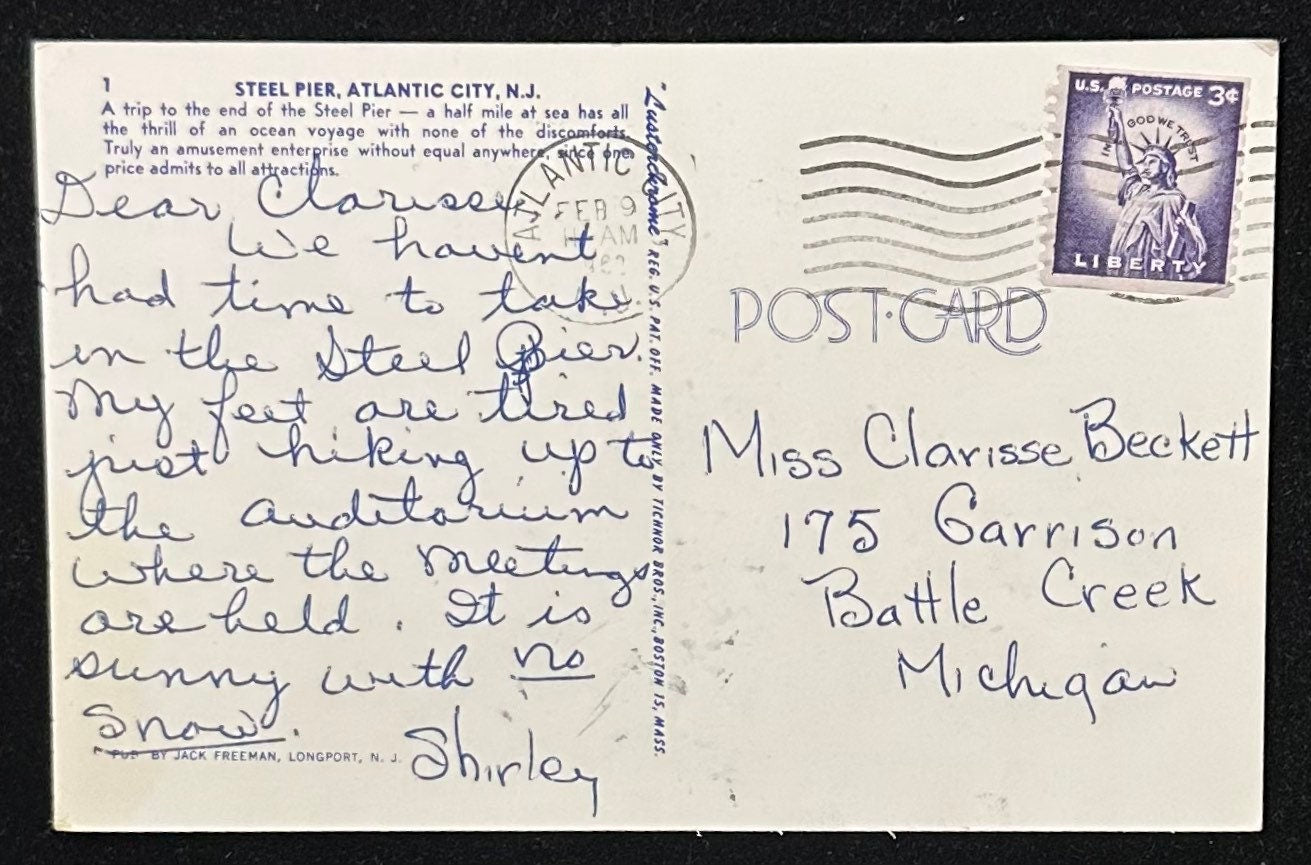 1
STEEL PIER, ATLANTIC CITY, N.J.
A trip to the end of the Steel Pier — a half mile at sea has all
the thrill of an ocean voyage with none of the discomforts.
Truly an amusement enterprise without equal anywhere, since one
price admits to all attractions.
Dear Clarisse
We havent
had time to take
in the Steel Pier.
My feet are tired
just hiking up to
the auditorium
where the meetings
are held. It is
sunny with no
snow.
Shirley
PUB BY JACK FREEMAN, LONGPORT, N. J.
"Lusterchrome" REG. U.S. PAT. OFF. MADE ONLY BY TICHNOR BROS., INC., BOSTON 15, MASS.
ATLANTIC CITY
FEB 9
AM
U.S. POSTAGE 3¢
IN GOD WE TRUST
LIBERTY
POST·CARD
Miss Clarisse Beckett
175 Garrison
Battle Creek
Michigan